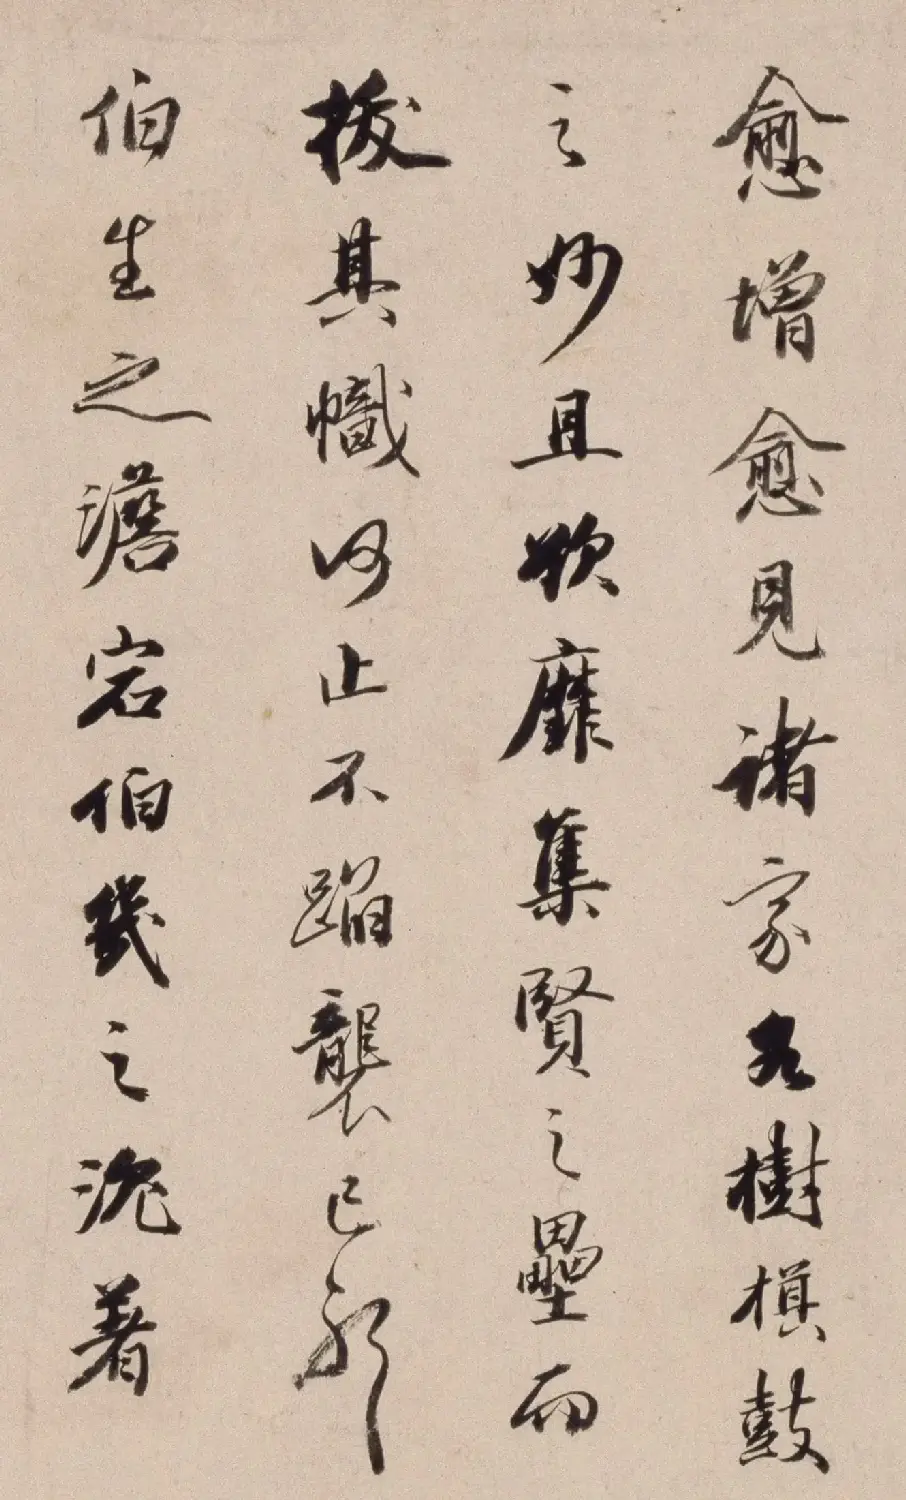 愈增愈見諸家各樹旗鼓
之妙且欲靡集賢之壘而
拔其幟何止不蹈襲已耶
伯生之澹宕伯幾之沈著